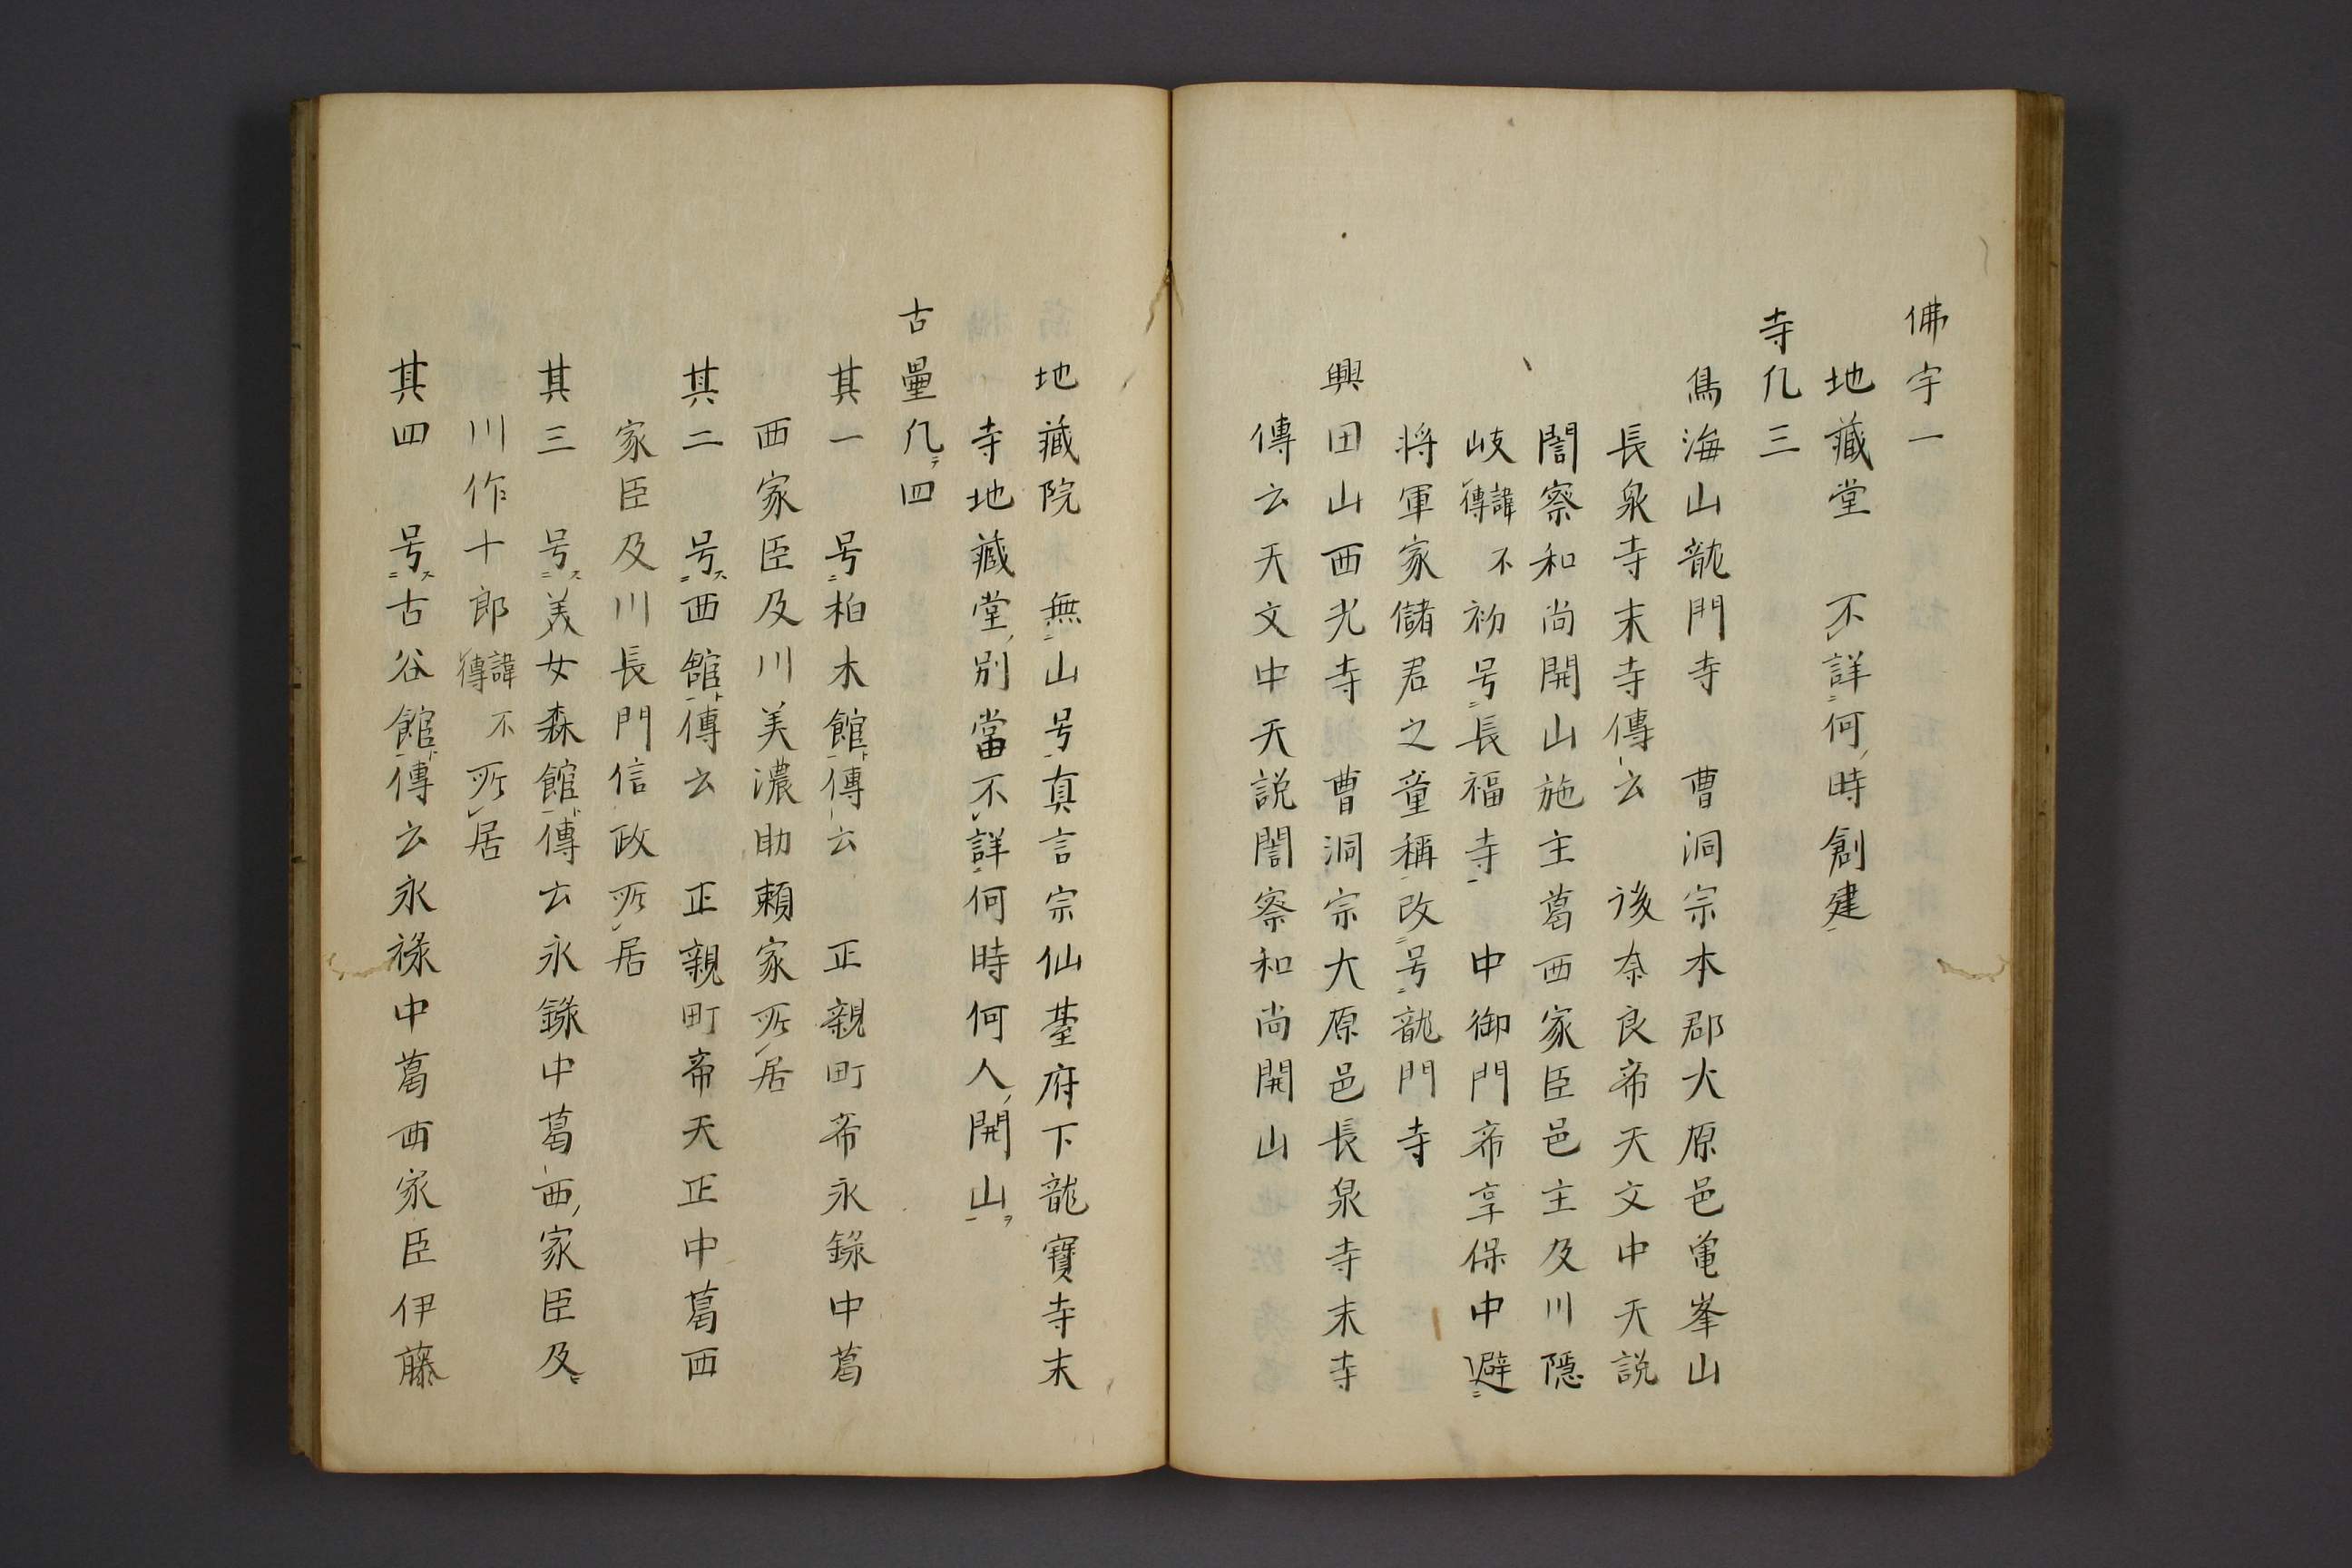 佛宇一
地藏堂　不詳何時創建
寺凡三
鳥海山龍門寺　曹洞宗本郡大原邑亀峯山
長泉寺末寺傳云　後奈良帝天文中天説
誾察和尚開山施主葛西家臣邑主及川隠
岐諱不傳初号長福寺　中御門帝享保中避
将軍家儲君之童稱改号龍門寺
興田山西光寺　曹洞宗大原邑長泉寺末寺
傳云天文中天説誾察和尚開山
地藏院　無山号真言宗仙臺府下龍寶寺末
寺地藏堂別當不詳何時何人開山
古壘凡四
其一　号柏木館傳云　正親町帝永錄中葛
西家臣及川美濃助頼家所居
其二　号西館傳云　正親町帝天正中葛西
家臣及川長門信政所居
其三　号美女森館傳云永錄中葛西家臣及
川作十郎諱不傳所居
其四　号古谷館傳云永禄中葛西家臣伊藤